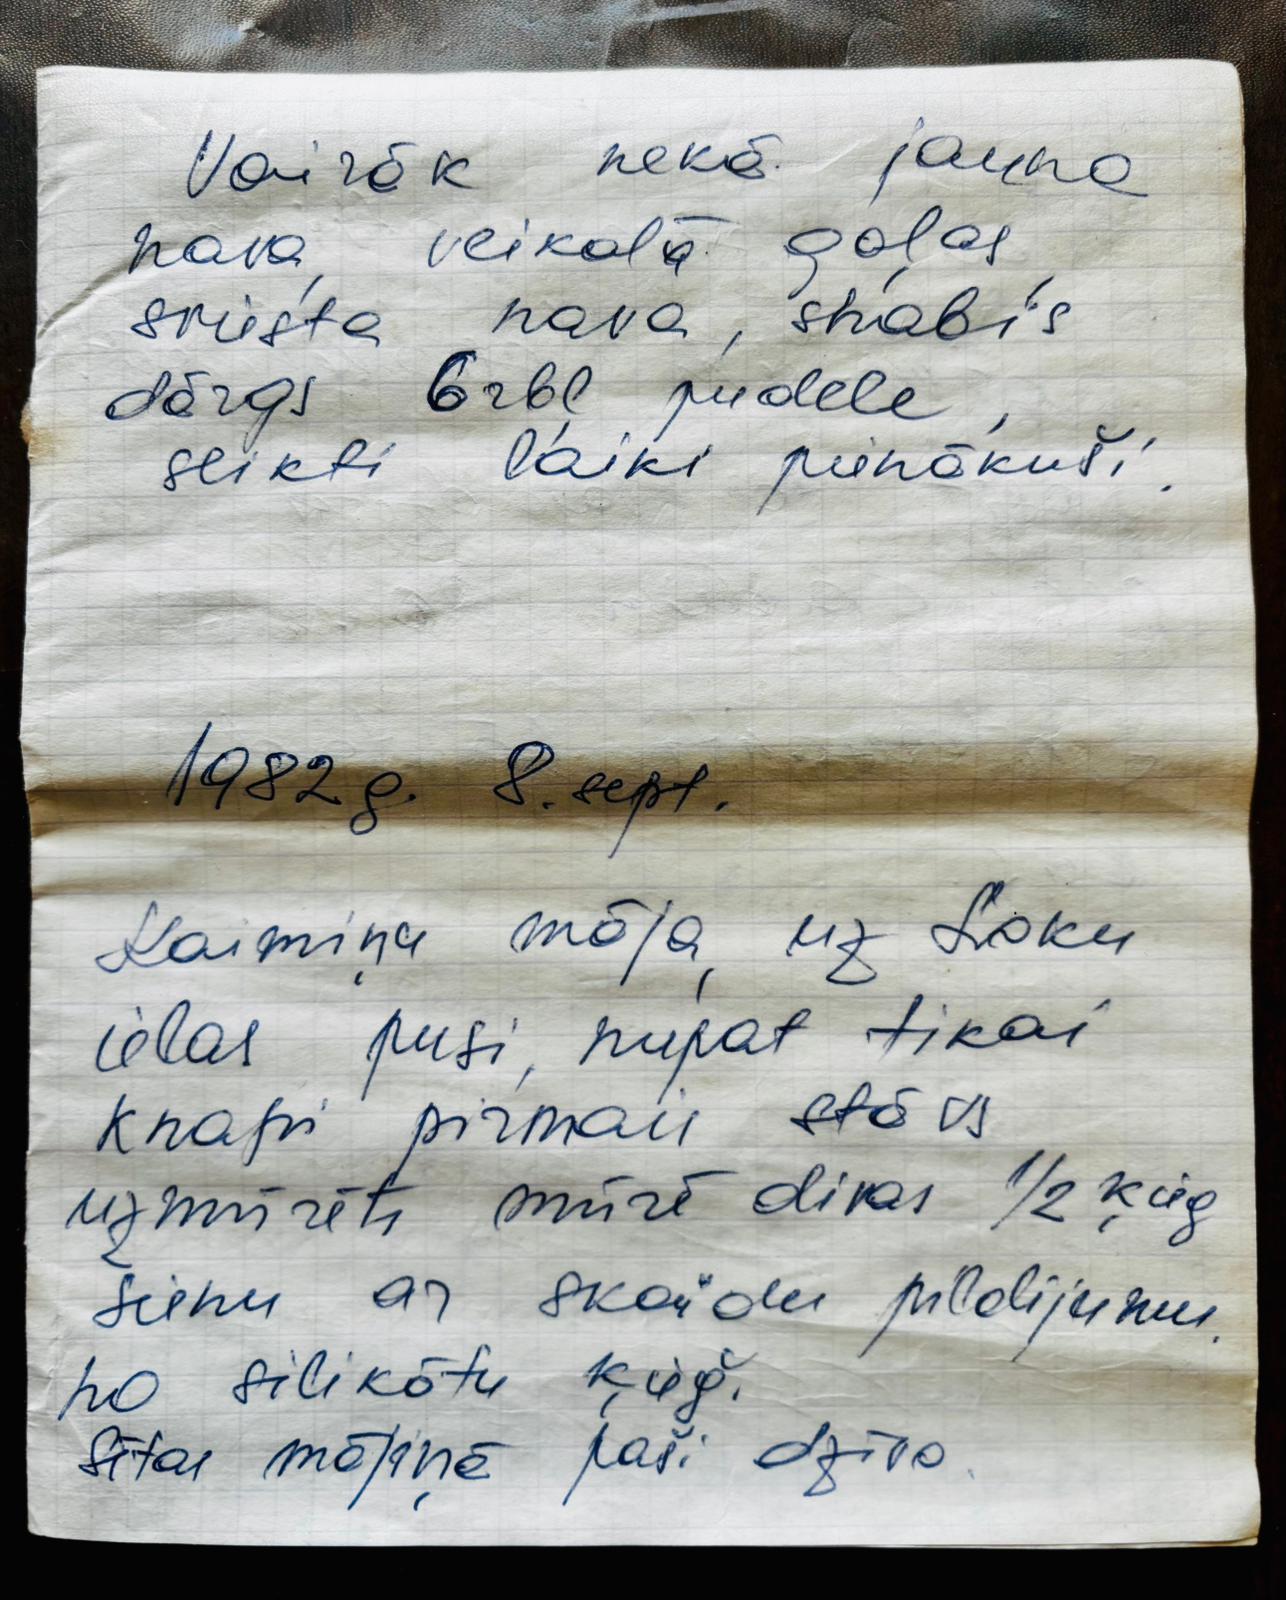 Vairāk nekā jauna
nava, veikalā gaļas,
sviesta nava, šnabis
dārgs 6 rbļ pudele,
slikti laiki pienākuši.
1982 g. 8. sept.
Kaimiņu māja, uz Sloku
ielas pusi, nupat tikai
knapi pirmais stāvs
uzmūrēts mūrē divas 1/2 ķieg
sienu ar skaidu pildījumu,
no silikātu ķieģ.
Šitai mājiņā paši dzīvo.